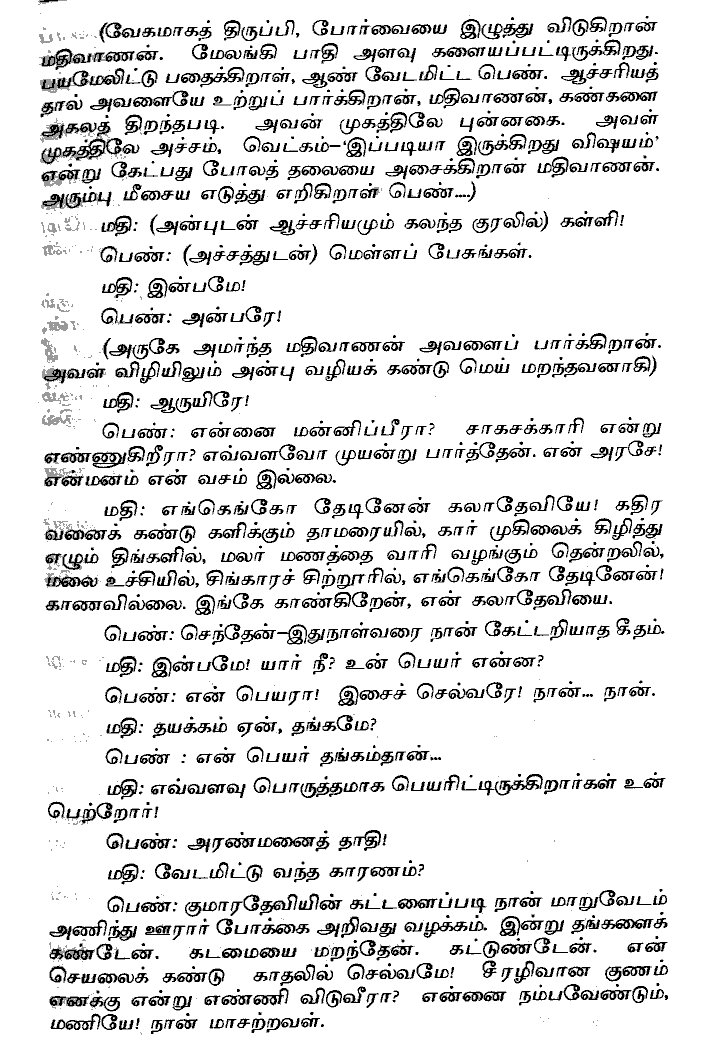 (வேகமாகத் திருப்பி, போர்வையை இழுத்து விடுகிறான்
மதிவாணன். மேலங்கி பாதி அளவு களையப்பட்டிருக்கிறது.
பயமேலிட்டு பதைக்கிறாள், ஆண் வேடமிட்ட பெண். ஆச்சரியத்
தால் அவளையே உற்றுப் பார்க்கிறான், மதிவாணன், கண்களை
அகலத் திறந்தபடி. அவன் முகத்திலே புன்னகை. அவள்
முகத்திலே அச்சம், வெட்கம்–‘இப்படியா இருக்கிறது விஷயம்’
என்று கேட்பது போலத் தலையை அசைக்கிறான் மதிவாணன்.
அரும்பு மீசைய எடுத்து எறிகிறாள் பெண்....)
மதி: (அன்புடன் ஆச்சரியமும் கலந்த குரலில்) கள்ளி!
பெண்: (அச்சத்துடன்) மெள்ளப் பேசுங்கள்.
மதி: இன்பமே!
பெண்: அன்பரே!
(அருகே அமர்ந்த மதிவாணன் அவளைப் பார்க்கிறான்.
அவள் விழியிலும் அன்பு வழியக் கண்டு மெய் மறந்தவனாகி)
மதி: ஆருயிரே!
பெண்: என்னை மன்னிப்பீரா? சாகசக்காரி என்று
எண்ணுகிறீரா? எவ்வளவோ முயன்று பார்த்தேன். என் அரசே!
என்மனம் என் வசம் இல்லை.
மதி: எங்கெங்கோ தேடினேன் கலாதேவியே! கதிர
வனைக் கண்டு களிக்கும் தாமரையில், கார் முகிலைக் கிழித்து
எழும் திங்களில், மலர் மணத்தை வாரி வழங்கும் தென்றலில்,
மலை உச்சியில், சிங்காரச் சிற்றூரில், எங்கெங்கோ தேடினேன்!
காணவில்லை. இங்கே காண்கிறேன், என் கலாதேவியை.
பெண்: செந்தேன்–இதுநாள்வரை நான் கேட்டறியாத கீதம்.
மதி: இன்பமே! யார் நீ? உன் பெயர் என்ன?
பெண்: என் பெயரா! இசைச் செல்வரே! நான்... நான்.
மதி: தயக்கம் ஏன், தங்கமே?
பெண் : என் பெயர் தங்கம்தான்...
மதி: எவ்வளவு பொருத்தமாக பெயரிட்டிருக்கிறார்கள் உன்
பெற்றோர்!
பெண்: அரண்மனைத் தாதி!
மதி: வேடமிட்டு வந்த காரணம்?
பெண்: குமாரதேவியின் கட்டளைப்படி நான் மாறுவேடம்
அணிந்து ஊரார் போக்கை அறிவது வழக்கம். இன்று தங்களைக்
கண்டேன். கடமையை மறந்தேன். கட்டுண்டேன். என்
செயலைக் கண்டு காதலில் செல்வமே! சீரழிவான குணம்
எனக்கு என்று எண்ணி விடுவீரா? என்னை நம்பவேண்டும்,
மணியே! நான் மாசற்றவள்.